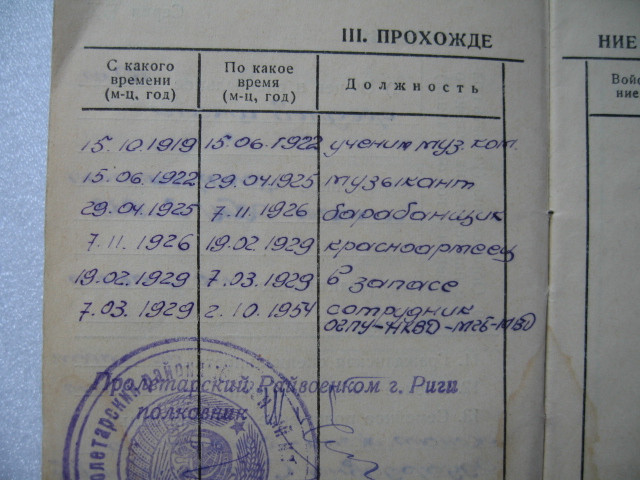 III. ПРОХОЖДЕ
НИЕ
С какого времени (м-ц, год)
По какое время (м-ц, год)
Должность
Войс
ние
15.10.1919 15.06.1922 ученик муз. ком.
15.06.1922 29.04.1925 музыкант
29.04.1925 7.11.1926 барабанщик
7.11.1926 19.02.1929 красноармеец
19.02.1929 7.03.1929 в запасе
7.03.1929 2.10.1954 сотрудник
ОГПУ-НКВД-МГБ-МВД
Пролетарский Райвоенком г. Риги
полковник